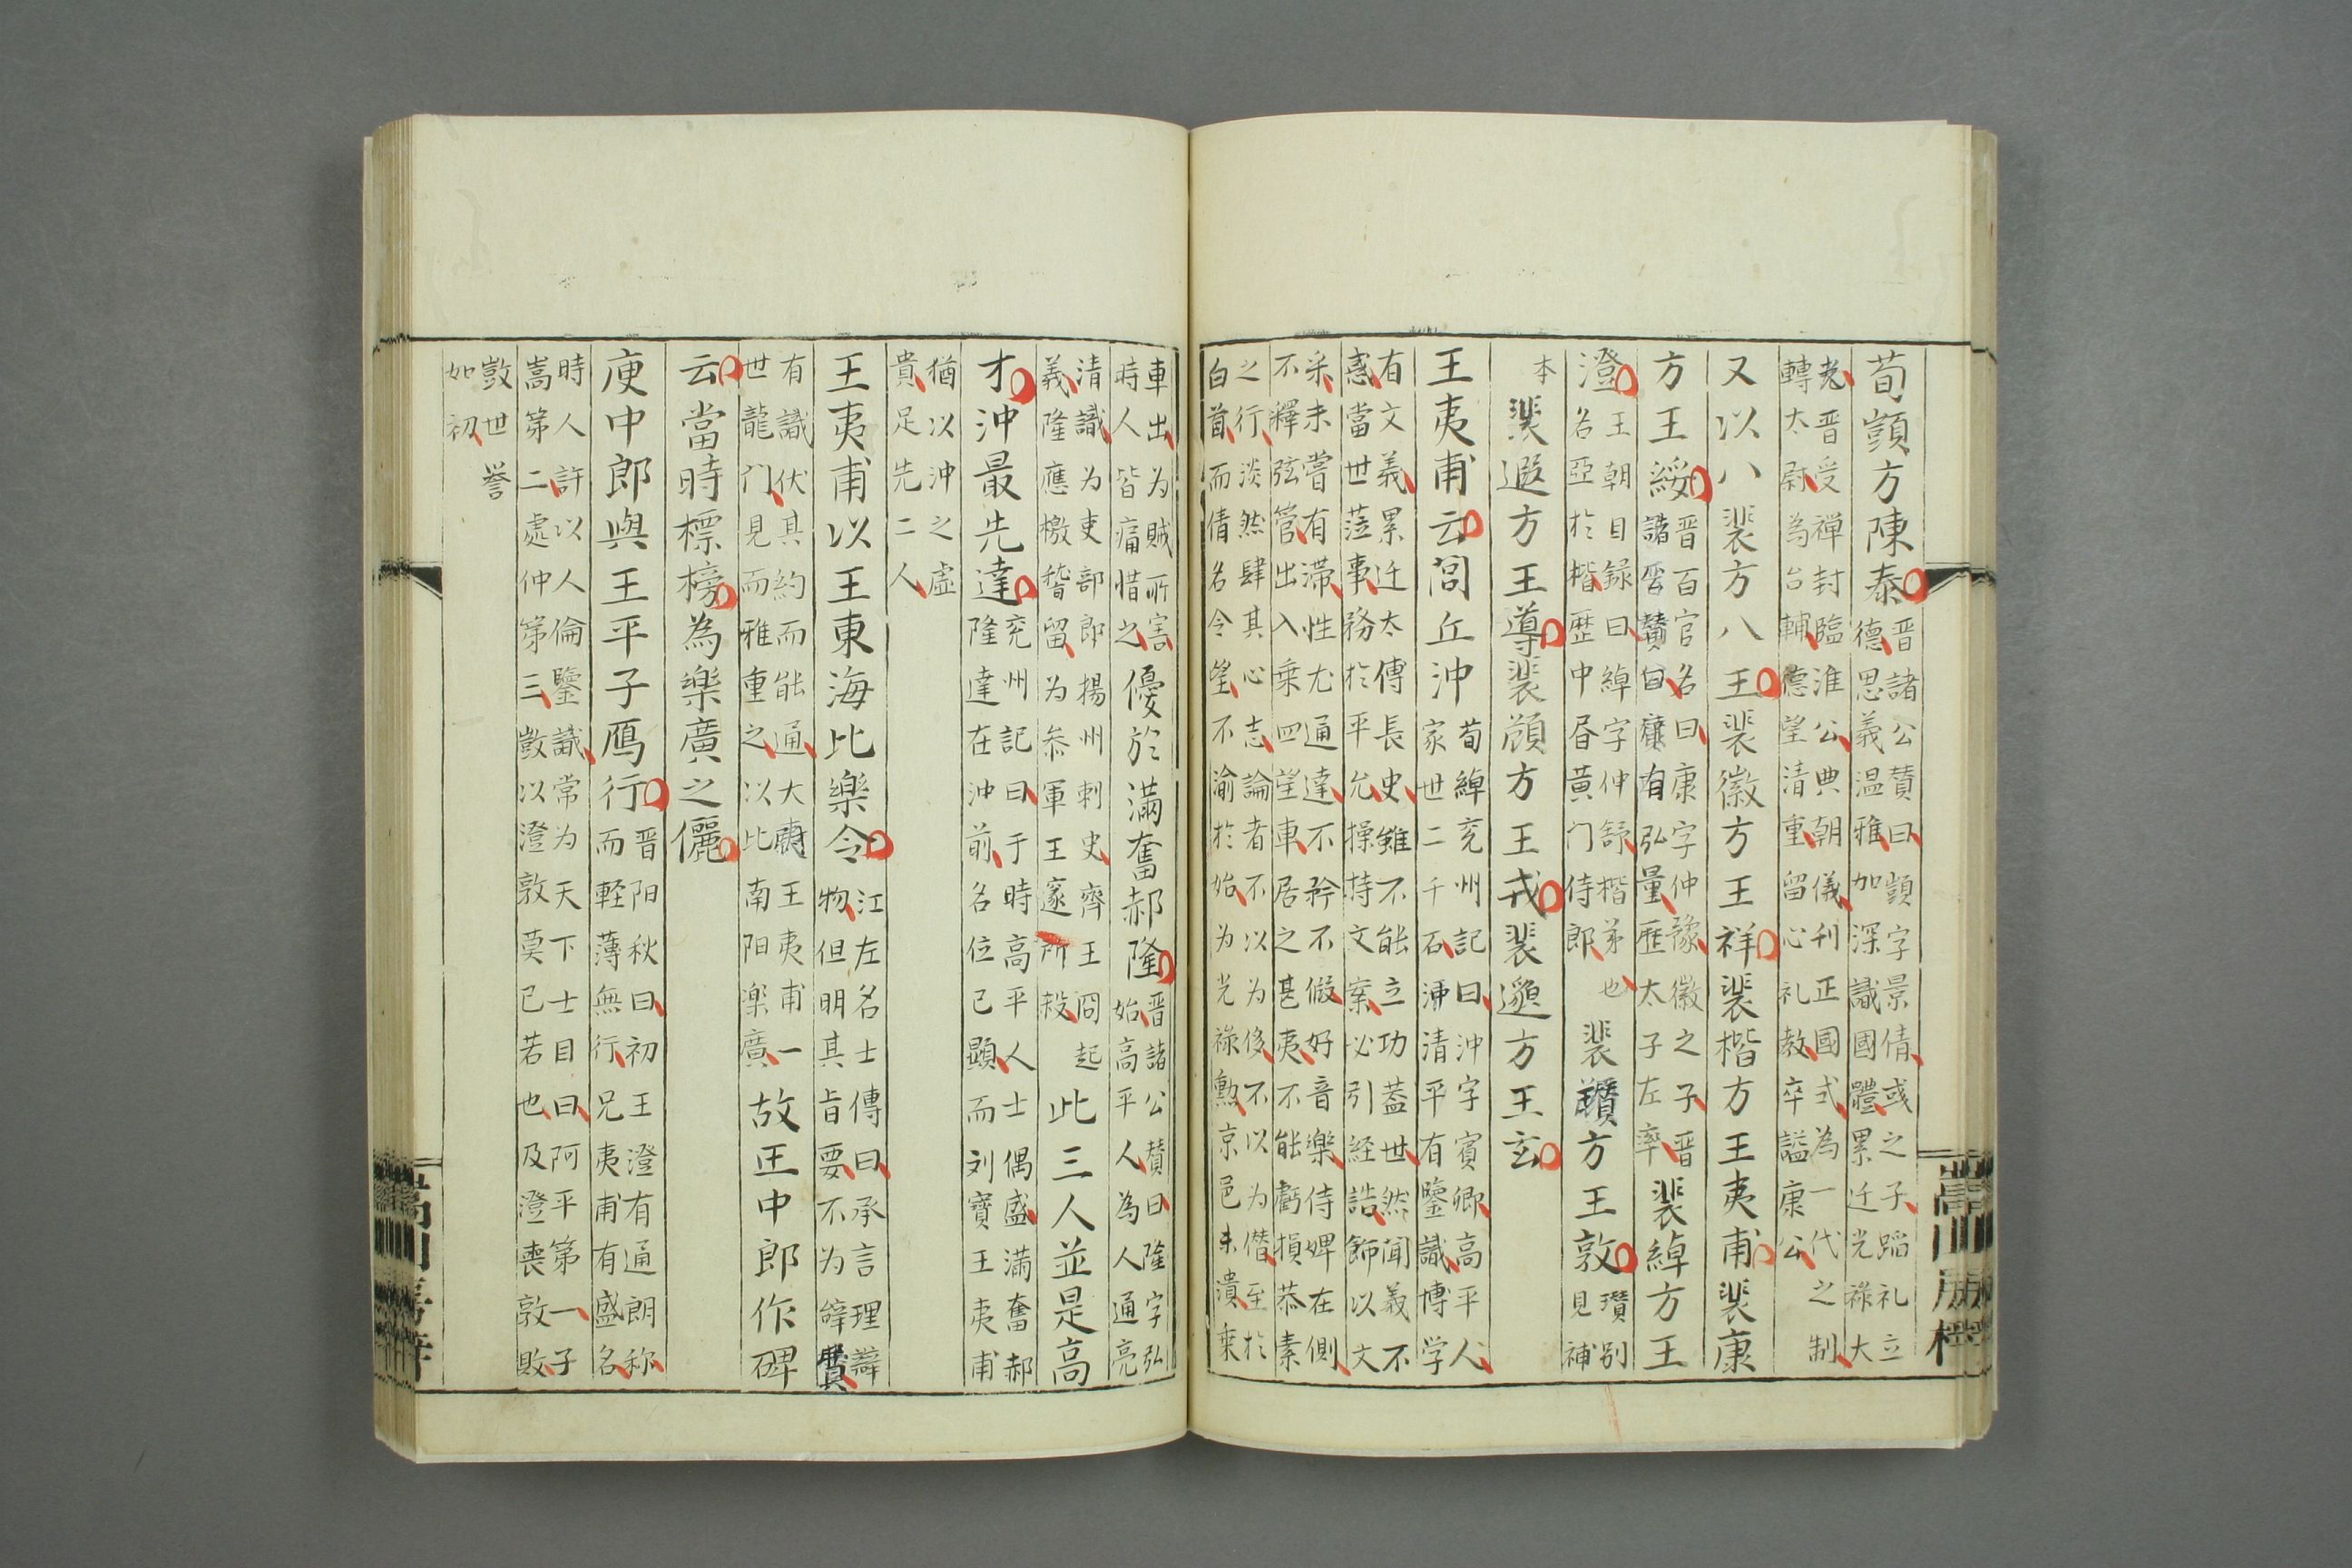 荀顗方陳泰
晋諸公賛曰顗字景倩彧之子蹈礼立
德思義温雅加深識國體累迁光禄大
夫晋受禅封臨淮公典朝儀刊正國式為一代之制
轉太尉為台輔德望清重留心礼教卒謚康公
又以八裴方八王裴徽方王祥裴楷方王夷甫裴康
方王綏
晋百官名曰康字仲豫徽之子晋
諸公賛曰康有弘量歴太子左率
裴綽方王
澄
王朝目録曰綽字仲舒楷弟也
名亞於楷歴中書黄门侍郎
裴瓚方王敦
瓚别
見補
本
裴遐方王導裴頠方王戎裴邈方王玄
王夷甫云閭丘沖
荀綽兖州記曰沖字賓卿高平人
家世二千石沖清平有鑒識博学
有文義累迁太傅長史雖不能立功蓋世然聞義不
惑當世蒞事務於平允操持文案必引経誥飾以文
采未嘗有滞性尤通達不矜不假好音樂侍婢在側
不釋弦管出入乗四望車居之甚夷不能虧損恭素
之行淡然肆其心志論者不以为侈不以为僭至於
白首而倩名令望不渝於始为光禄勲京邑未潰乗
車出为賊所害
時人皆痛惜之
優於滿奮郝隆
晋諸公賛曰隆字弘
始高平人為人通亮
清識为吏部郎揚州刺史齊王冏起
義隆應檄稽留为叅軍王邃所殺
此三人並是高
才沖最先達
兖州記曰于時高平人士偶盛滿奮郝
隆達在沖前名位已顕而刘寶王夷甫
猶以沖之虚
貴足先二人
王夷甫以王東海比樂令
江左名士傳曰承言理辯
物但明其旨要不为辞費
有識伏其約而能通大尉王夷甫一
世龍门見而雅重之以比南阳楽廣
故王中郎作碑
云當時標榜為樂廣之儷
庾中郎與王平子鴈行
晋阳秋曰初王澄有通朗称
而軽薄無行兄夷甫有盛名
時人許以人倫鑒識常为天下士目曰阿平第一子
嵩第二處仲第三敳以澄敦莫已若也及澄喪敦敗
敳世誉
如初